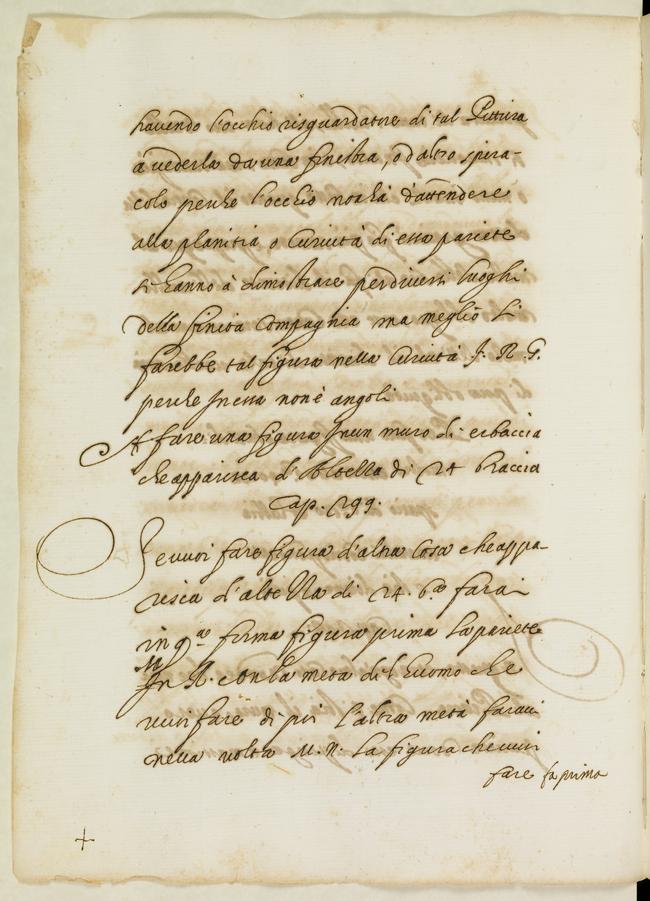 havendo l'occhio risguardatore di tal Pittura
à vederla da una finestra, o d'altro spira-
colo perche l'occhio non hà d'attendere
alla planitia o Curvità di essa pariete
si hanno à dimostrare per diversi luoghi
della finita Compagnia ma meglio si
farebbe tal figura nella Curvità F. R. G.
perche In essa non è angoli
A fare una figura In un muro di
che apparisca d'Altezza di 24 braccia
Cap. 299.
Se vuoi fare figura d'altra Cosa che appa-
risca d'altezza di 24. b.a farai
in q.a forma figura prima la pariete
M
In R. con la meta del'huomo che
vuoi fare di poi l'altra metà farai
nella volta M. N. la figura che vuoi
fare fa prima
+